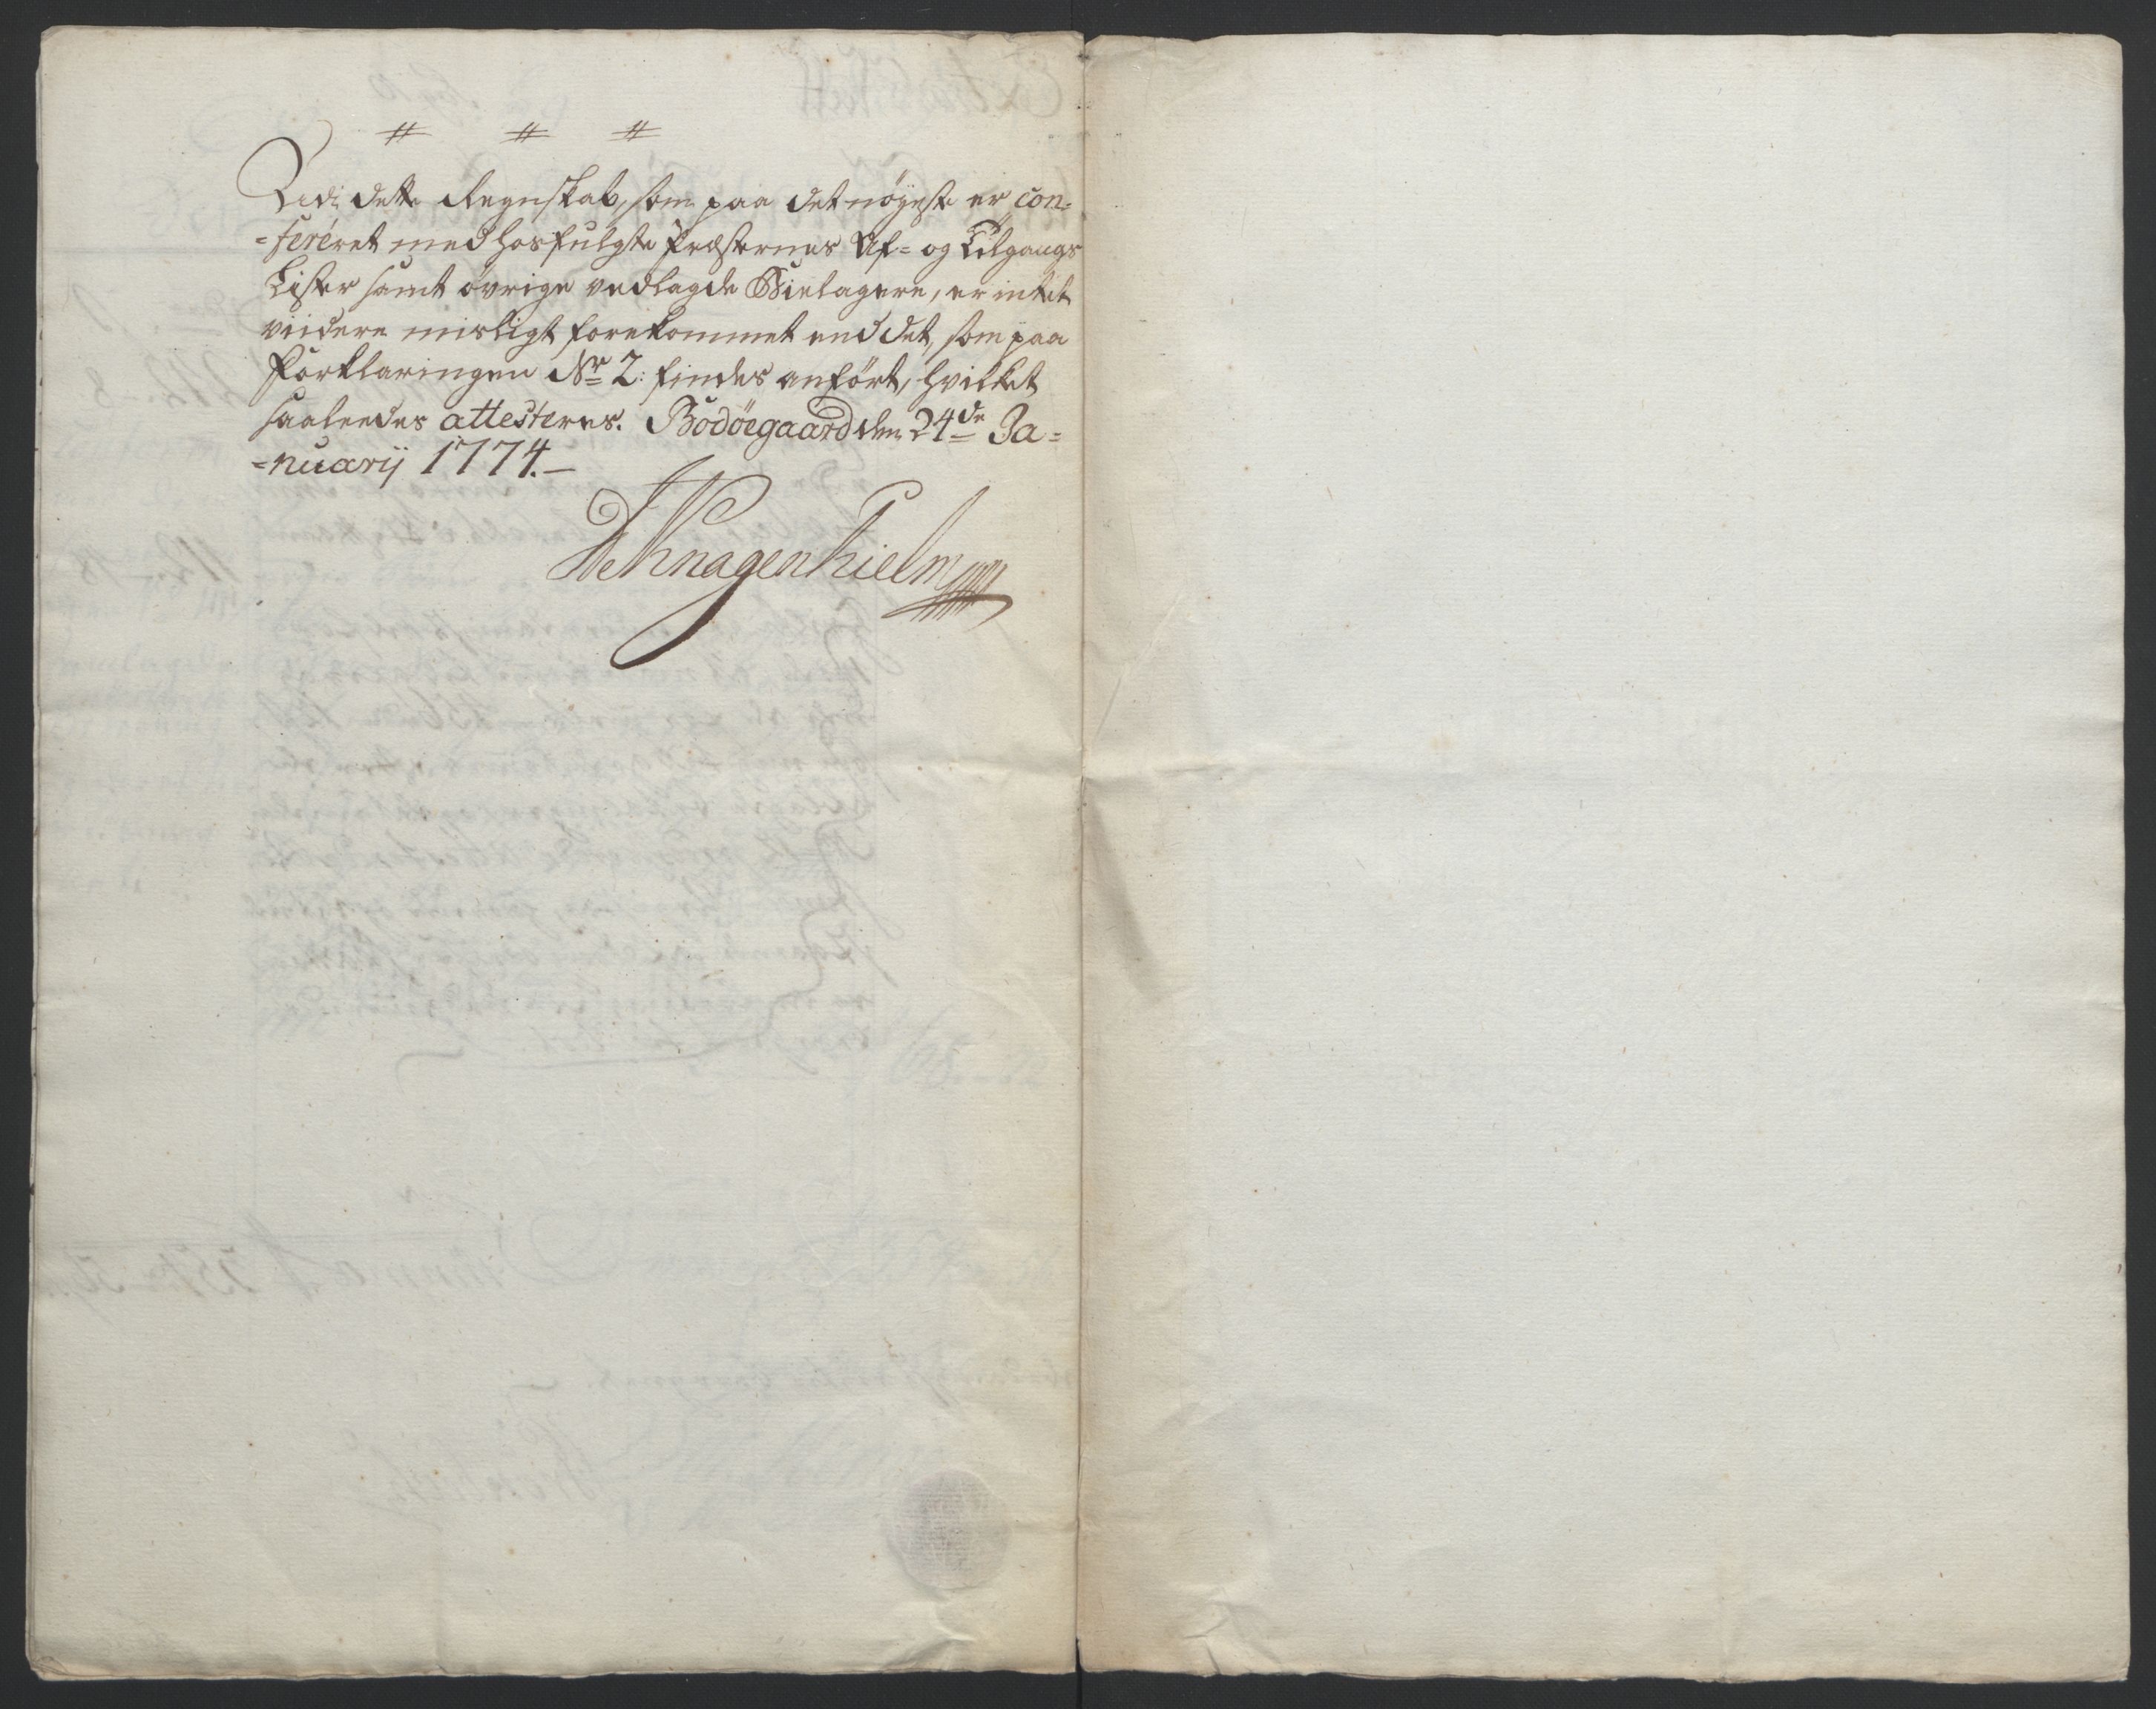 # # #
Ved dette Regnskab, som paa det nøyeste er con-
=fereret med hosfulgte Præsternes Af- og Tilgangs
Lister samt øvrige vedlagde Bielagere, er intet
viidere misligt forekommet end det, som paa
Forklaringen No 2: findes anført, hvilket
saaledes attesteres. Bodøegaard den 24de Ja=
=nuarij 1774.-
Knagenhielm